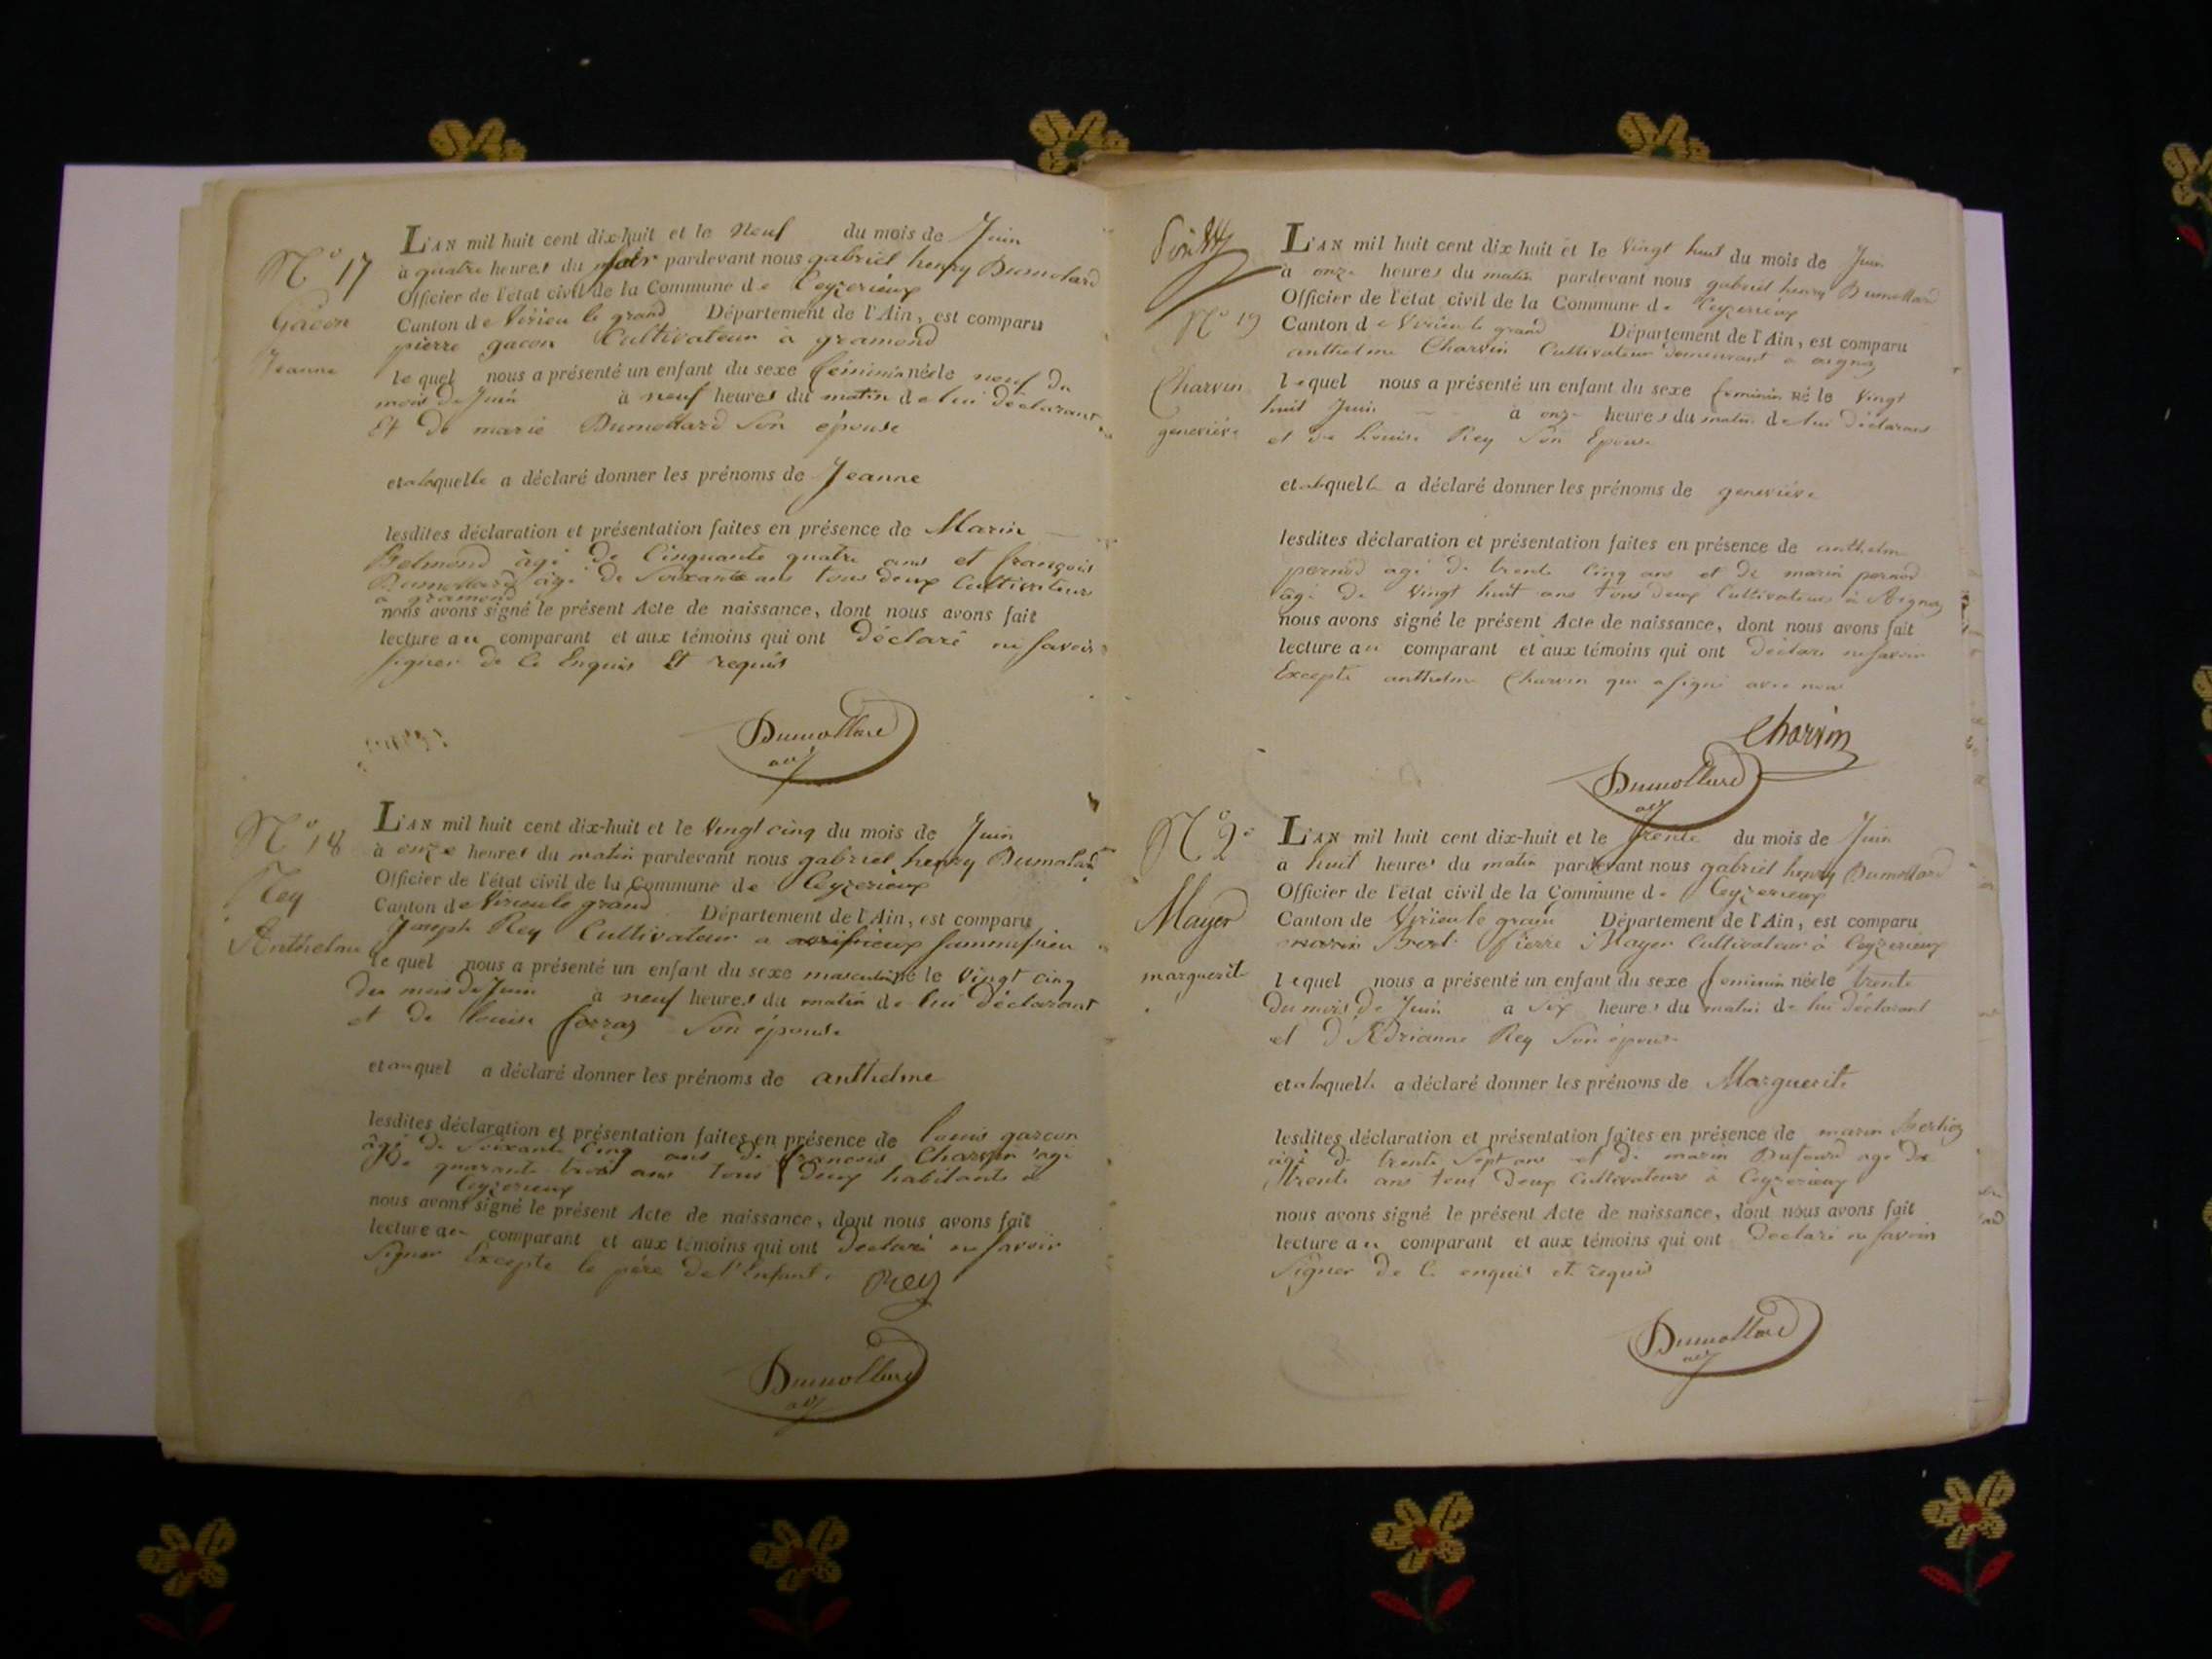 N° 17
Gacon
Jeanne
L'AN mil huit cent dix-huit et le Neuf du mois de Juin
à quatre heures du soir pardevant nous gabriel henry Dumollard
Officier de l'état civil de la Commune de Ceyzerieux
Canton de Virieu le grand Département de l'Ain, est comparu
pierre gacon Cultivateur à gramond
lequel nous a présenté un enfant du sexe féminin née le neuf du
mois de Juin à neuf heures du matin de lui déclarant
Et de marie Dumollard Son épouse
et a laquelle a déclaré donner les prénoms de Jeanne
lesdites déclaration et présentation faites en présence de Marin
Belmond âgé de Cinquante quatre ans et françois
Dumollard âgé de Soixante ans tous deux Cultivateurs
a gramond
nous avons signé le présent Acte de naissance, dont nous avons fait
lecture au comparant et aux témoins qui ont déclaré ne savoir
signer de Ce Enquis Et requis
Dumollard
adj
N° 18
Rey
Anthelme
L'AN mil huit cent dix-huit et le Vingt cinq du mois de Juin
à onze heures du matin pardevant nous gabriel henry Dumolard
Officier de l'état civil de la Commune de Ceyzerieux
Canton de Virieu le grand Département de l'Ain, est comparu
Joseph Rey Cultivateur a
lequel nous a présenté un enfant du sexe masculin né le Vingt cinq
du mois de Juin à neuf heures du matin de lui déclarant
et de louise forraz Son épouse
et auquel a déclaré donner les prénoms de anthelme
lesdites déclaration et présentation faites en présence de louis garcon
âgé de Soixante Cinq ans de françois Charvin agé
de quarante trois ans tous deux habitants à
Ceyzerieux
nous avons signé le présent Acte de naissance, dont nous avons fait
lecture au comparant et aux témoins qui ont declaré ne savoir
Signer Excepte le père de l'Enfant.
Rey
Dumollard
adj
N° 19
Charvin
genevieve
L'AN mil huit cent dix huit et le Vingt huit du mois de Juin
à onze heures du matin pardevant nous gabriel henry Dumollard
Officier de l'état civil de la Commune de Ceyzerieux
Canton de Virieu le grand Département de l'Ain, est comparu
anthelme Charvin Cultivateur demeurant a aignoz
lequel nous a présenté un enfant du sexe feminin né le Vingt
huit Juin à onze heures du matin de lui déclarant
et de Louise Rey Son Epouse
et a laquelle a déclaré donner les prénoms de genevieve
lesdites déclaration et présentation faites en présence de anthelme
pernod agé de trente Cinq ans et de marin pernod
âgé de Vingt huit ans tous deux Cultivateurs à Aignoz
nous avons signé le présent Acte de naissance, dont nous avons fait
lecture au comparant et aux témoins qui ont déclaré ne savoir
Excepté anthelme Charvin qui a signé avec nous
Charvin
Dumollard
adj
N° 2°
Mayer
marguerite
L'AN mil huit cent dix-huit et le Trente du mois de Juin
à huit heures du matin pardevant nous gabriel henry Dumollard
Officier de l'état civil de la Commune de Ceyzerieux
Canton de Virieu le grand Département de l'Ain, est comparu
Pierre Mayer Cultivateur à Ceyzerieux
lequel nous a présenté un enfant du sexe feminin née le trente
du mois de Juin à Six heures du matin de lui déclarant
et d'Adrianne Rey Son épouse
et a laquelle a déclaré donner les prénoms de Marguerite
lesdites déclaration et présentation faites en présence de marin
âgé de trente Sept ans et de marin Dufourd agé de
trente ans tous deux Cultivateurs à Ceyzerieux
nous avons signé le présent Acte de naissance, dont nous avons fait
lecture au comparant et aux témoins qui ont déclaré ne savoir
Signer de Ce enquis et requis
Dumollard
adj